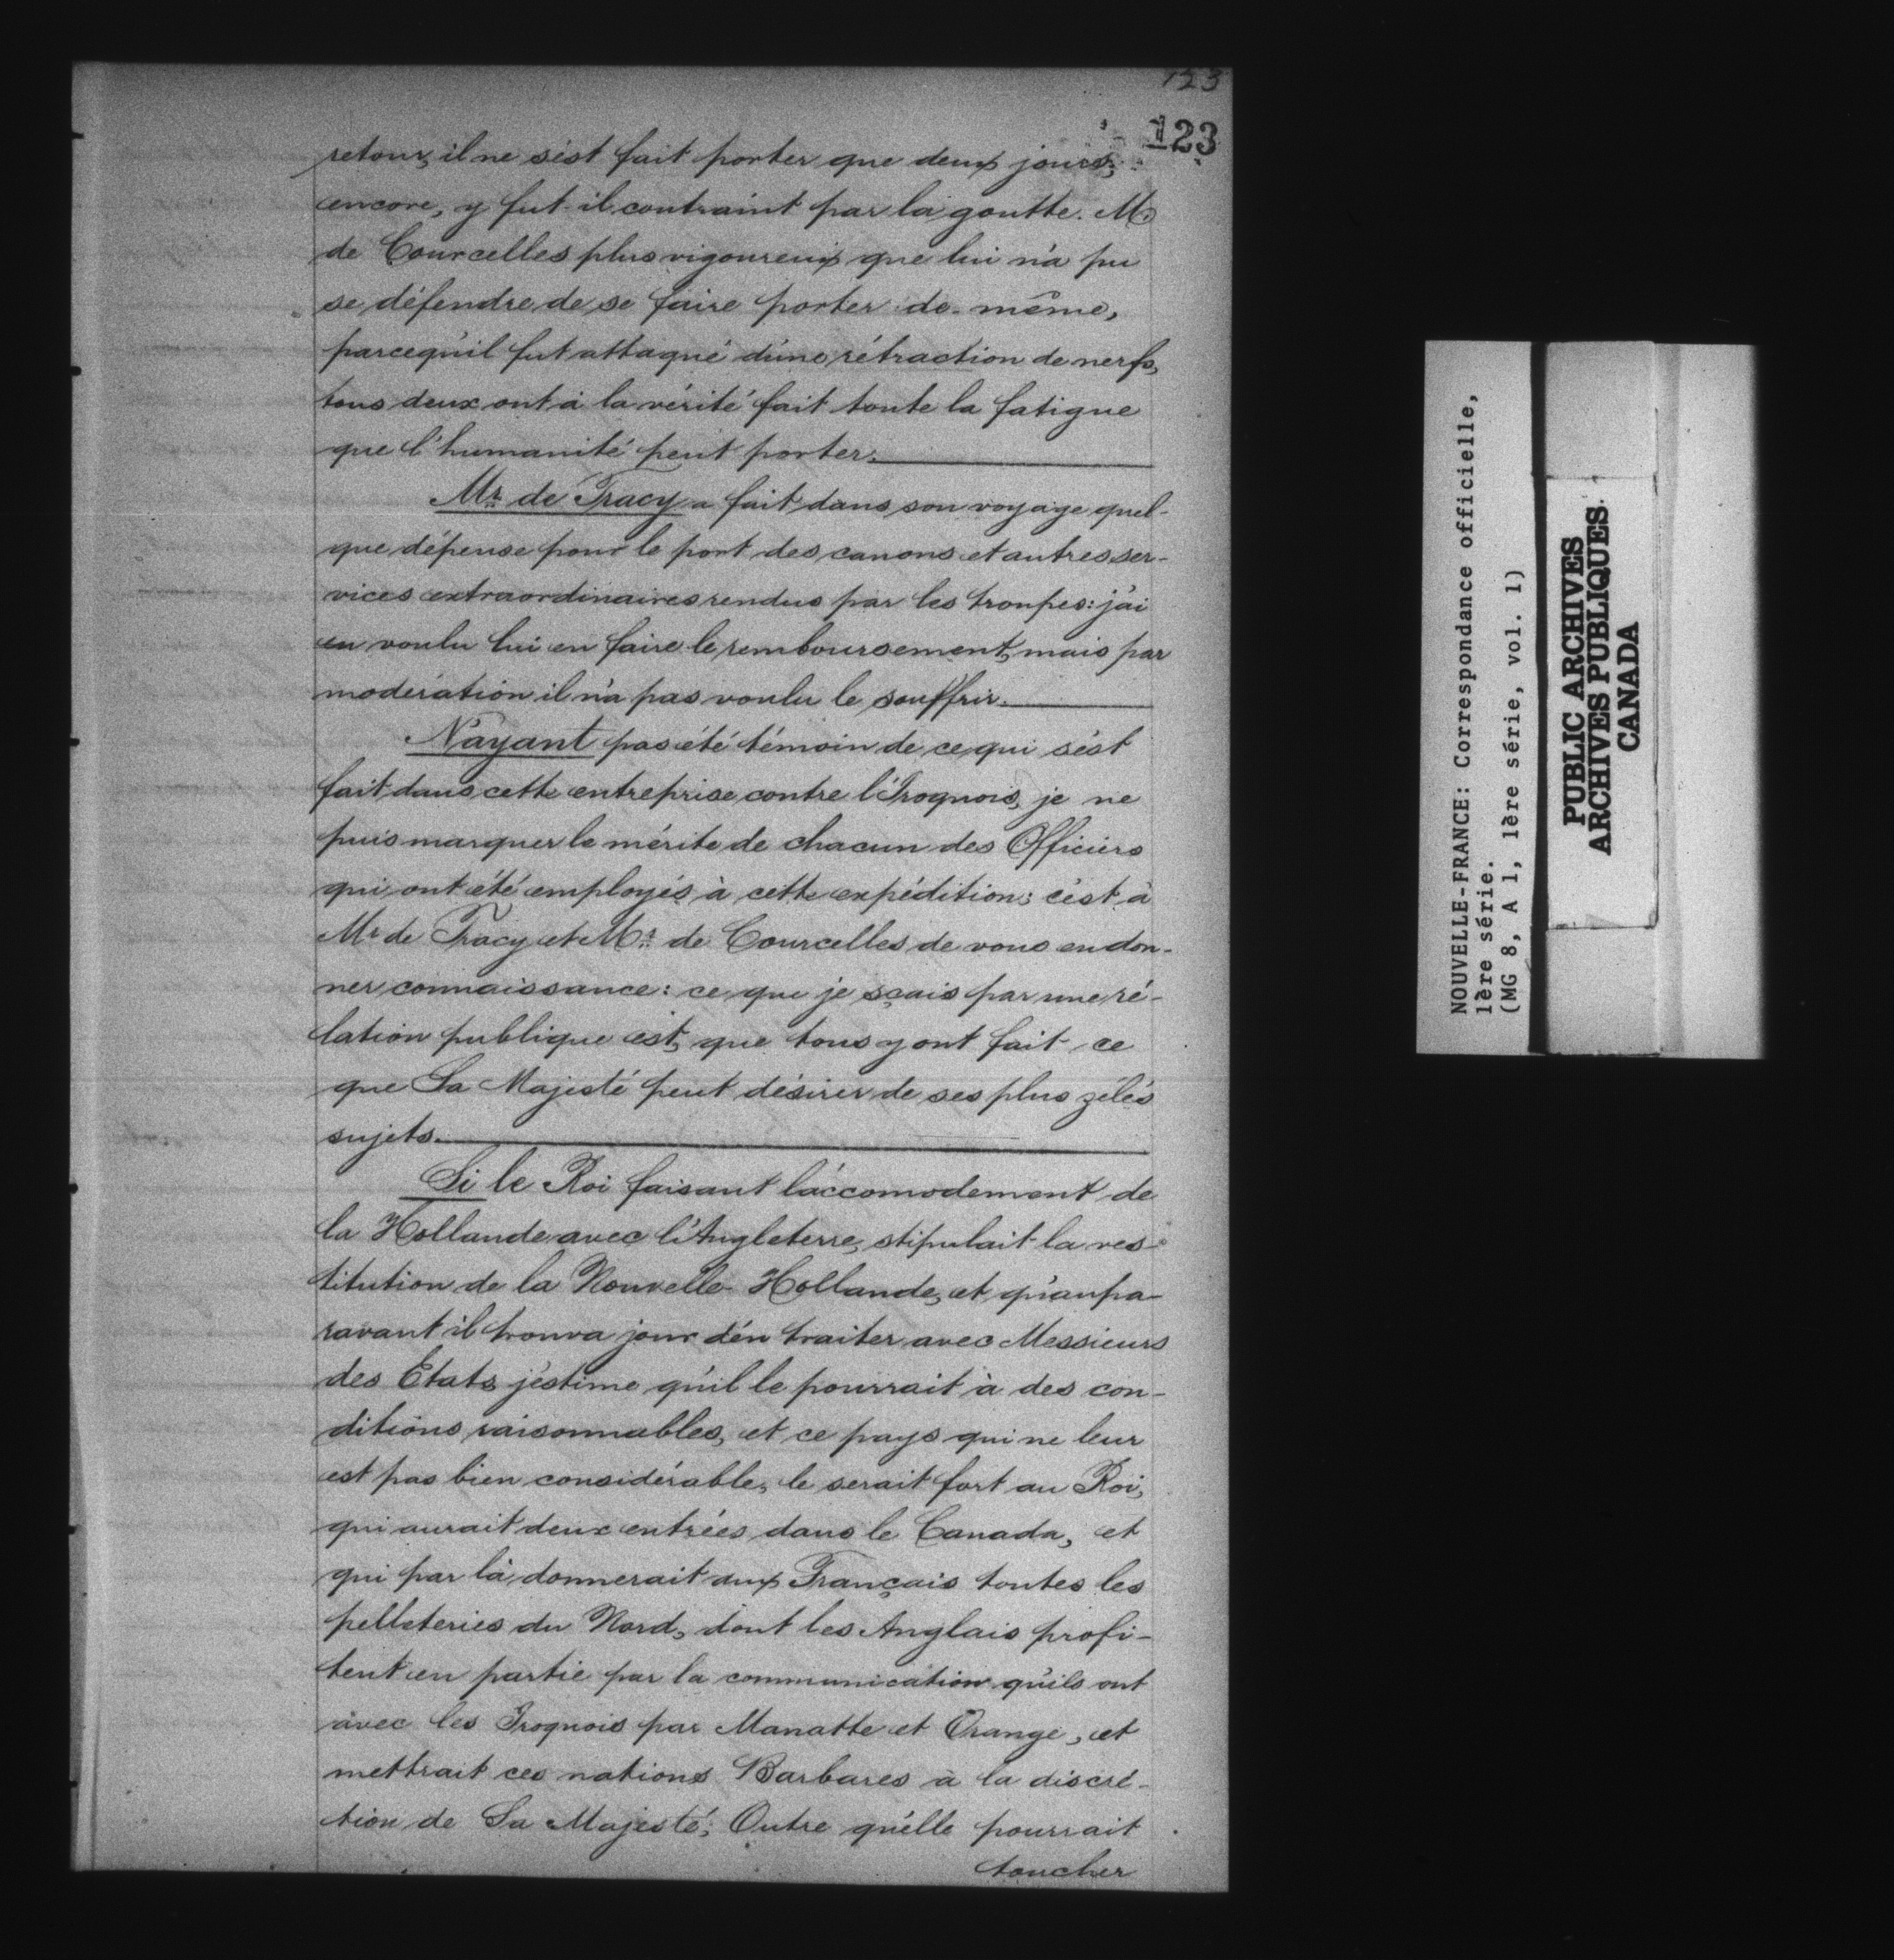 123
123
retour, il ne s'est fait porter que deux jours,
encore, y fut-il contraint par la goutte. Mr.
de Courcelles plus vigoureux que lui n'a pu
se défendre de se faire porter de même,
parcequ'il fut attaqué d'une rétraction de nerfs,
tous deux ont à la vérité fait toute la fatigue
que l'humanité peut porter.
Mr. de Tracy a fait dans son voyage quel-
que dépense pour le port des canons et autres ser-
vices extraordinaires rendus par les troupes: j'ai
en voulu lui en faire le remboursement, mais par
modération il n'a pas voulu le souffrir.
N'ayant pas été témoin de ce qui s'est
fait dans cette entreprise contre l'Iroquois, je ne
puis marquer le mérite de chacun des Officiers
qui ont été employés à cette expédition; c'est à
Mr de Tracy et Mr. de Courcelles de vous en don-
ner connaissance: ce que je sçais par une ré-
lation publique est, que tous y ont fait ce
que Sa Majesté peut désirer de ses plus zélés
sujets.
Si le Roi faisant l'accomodement de
la Hollande avec l'Angleterre, stipulait la res-
titution de la Nouvelle Hollande, et qu'aupa-
ravant il trouva jour d'en traiter avec Messieurs
des Etats, j'estime qu'il le pourrait à des con-
ditions raisonnables, et ce pays qui ne leur
est pas bien considérable, le serait fort au Roi,
qui aurait deux entrées dans le Canada, et
qui par là donnerait aux Français toutes les
pelleteries du Nord, dont les Anglais profi-
tent en partie par la communication qu'ils ont
avec les Iroquois par Manatte et Orange, et
mettrait ces nations Barbares à la discré-
tion de Sa Majesté; Outre qu'elle pourrait
toucher
NOUVELLE-FRANCE: Correspondance officielle,
1ère série.
(MG 8, A 1, 1ère série, vol. 1)
PUBLIC ARCHIVES
ARCHIVES PUBLIQUES
CANADA